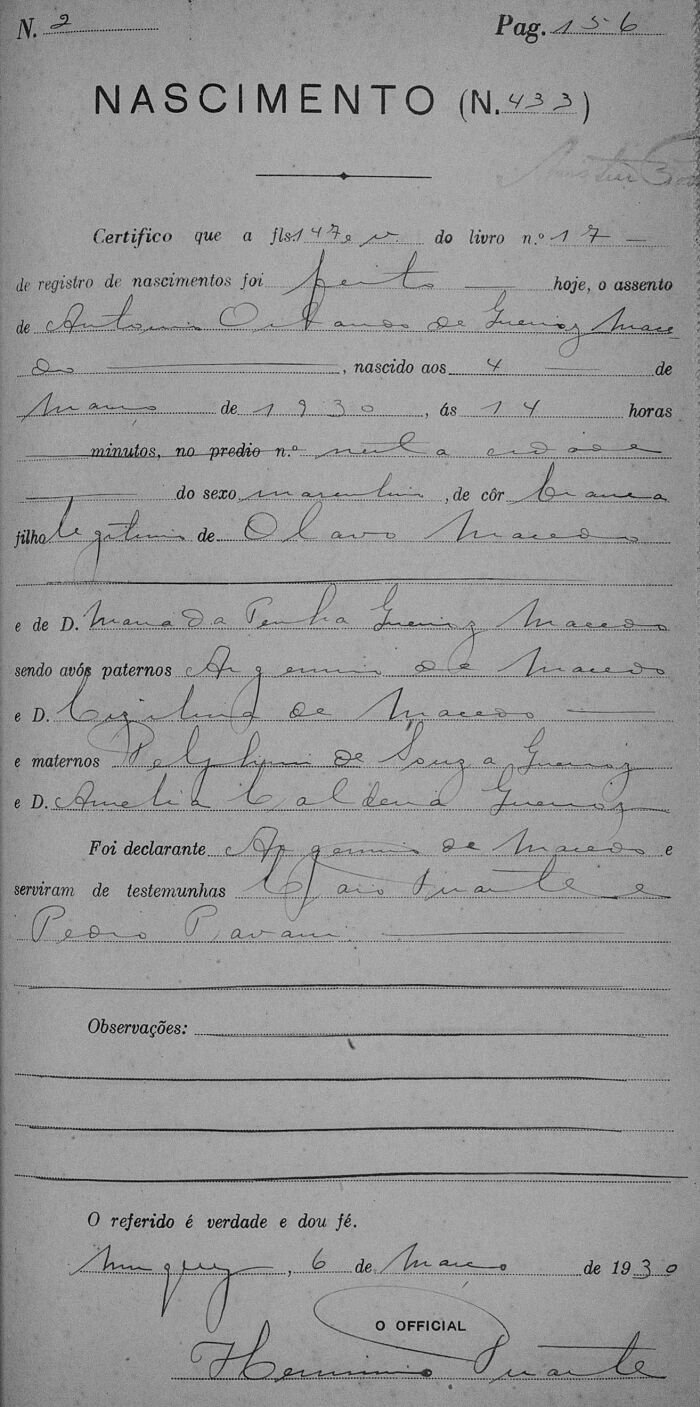 N. 2 Pag. 156
NASCIMENTO (N. 433)
Certifico que a fls. 147 e v. do livro n.º 17
de registro de nascimentos foi feito hoje, o assento
de Antonio Orlando de Queiroz Mace
do , nascido aos 4 de
Março de 1930, ás 14 horas
minutos, no predio n.º nesta cidade
do sexo masculino, de côr branca
filho legitimo de Olavo Macedo
e de D. Maria da Penha Queiroz Macedo
sendo avós paternos Argemiro de Macedo
e D. de Macedo
e maternos de Souza Queiroz
e D. Amelia Caldeira Queiroz
Foi declarante Argemiro de Macedo e
serviram de testemunhas Caio Duarte e
Pedro Pavani
Observações:
O referido é verdade e dou fé.
, 6 de Março de 1930
O OFFICIAL
Herminio Duarte